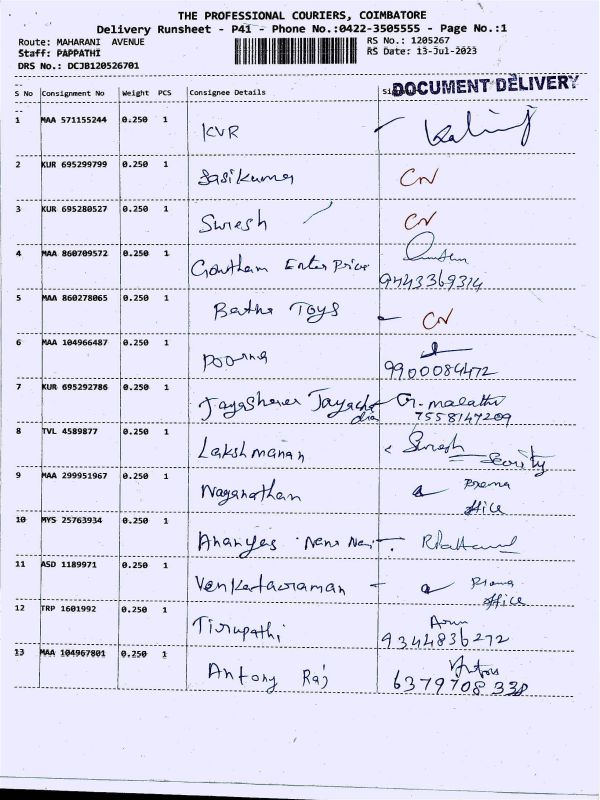 THE PROFESSIONAL COURIERS, COIMBATORE
Delivery Runsheet - P41 - Phone No.:0422-3505555 - Page No.:1
Route: MAHARANI AVENUE RS No.: 1205267
Staff: PAPPATHI RS Date: 13-Jul-2023
DRS No.: DCJB120526701
DOCUMENT DELIVERY
S No Consignment No Weight PCS Consignee Details
1 MAA 571155244 0.250 1 KVR
2 KUR 695299799 0.250 1 Sasikumar CN
3 KUR 695280527 0.250 1 Suresh CN
4 MAA 860709572 0.250 1 Goutham Enter Price
9443369314
5 MAA 860278065 0.250 1 Toys CN
6 MAA 104966487 0.250 1 Poorna
9900084472
7 KUR 695292786 0.250 1 G. malathi
7558147209
8 TVL 4589877 0.250 1 Lakshmanan Suresh
9 MAA 299951967 0.250 1 Naganathan
office
10 MYS 25763934 0.250 1
11 ASD 1189971 0.250 1 Venkataraman
office
12 TRP 1601992 0.250 1 Tirupathi Arun
9344836272
13 MAA 104967801 0.250 1 Antony Raj
6379708338